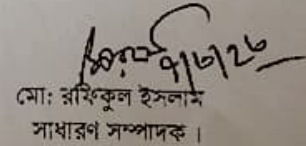 ৭/৮/২৮
মো: রফিকুল ইসলাম
সাধারণ সম্পাদক।